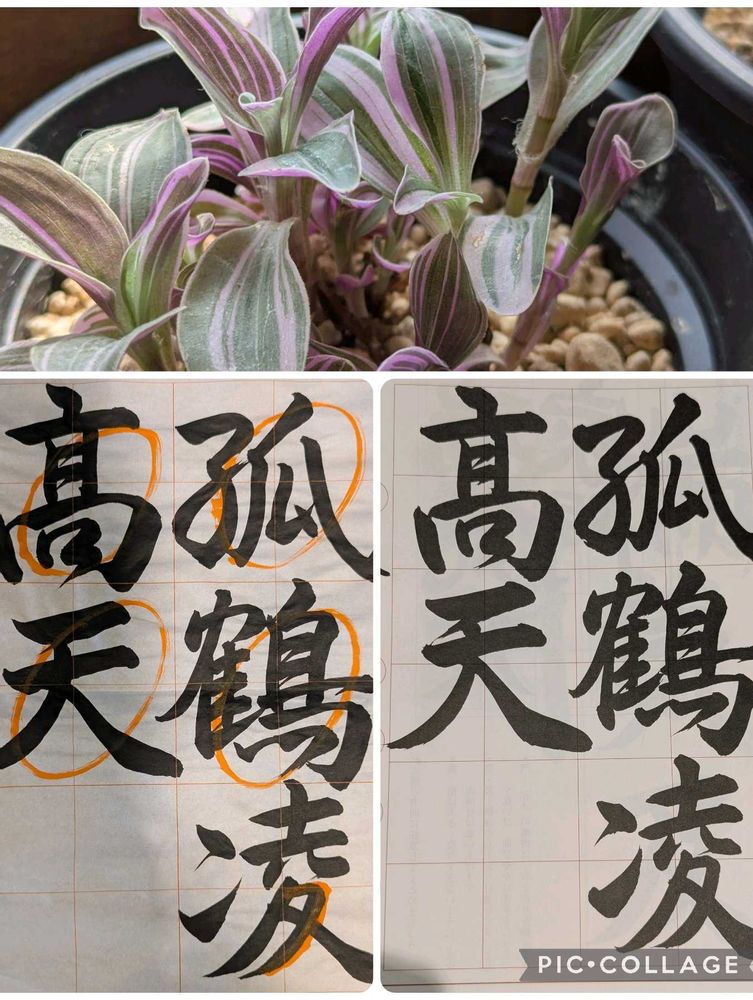 孤鶴凌
髙天
孤鶴凌
髙天
PIC•COLLAGE